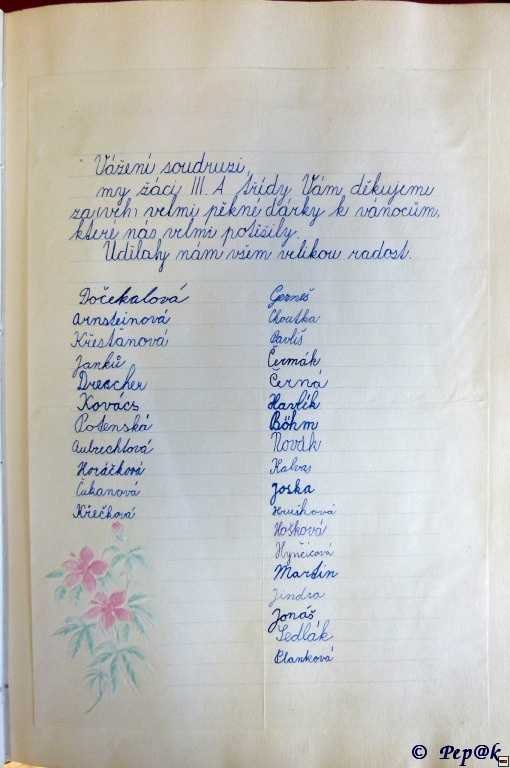 Vážení soudruzi,
my žáci III. A třídy Vám děkujeme
za velmi pěkné dárky k vánocům,
které nás velmi potěšily.
Udělaly nám všem velikou radost.
Dočekalová
Arnsteinová
Křesťanová
Janků
Drescher
Kovács
Aubrechtová
Horáčková
Cukanová
Křečková
Gerneš
Choutka
Pavliš
Čermák
Černá
Havlík
Böhm
Novák
Kalvas
Joska
Hrušková
Hošková
Hynčicová
Martin
Jindra
Jonáš
Sedlák
Planková
© Pep@k